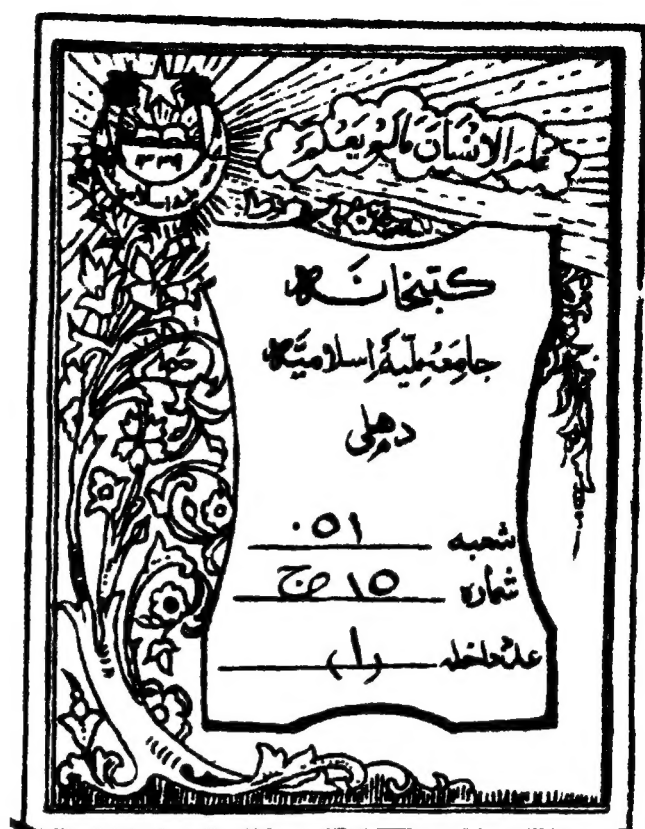 علم الانسان مالم يعلم
۱۳۳۹
کتبخانہ
جامعہ ملیۂ اسلامیہ
دہلی
شعبہ ۰۵۱
شمارہ ۱۵
عدد داخلہ (۱)